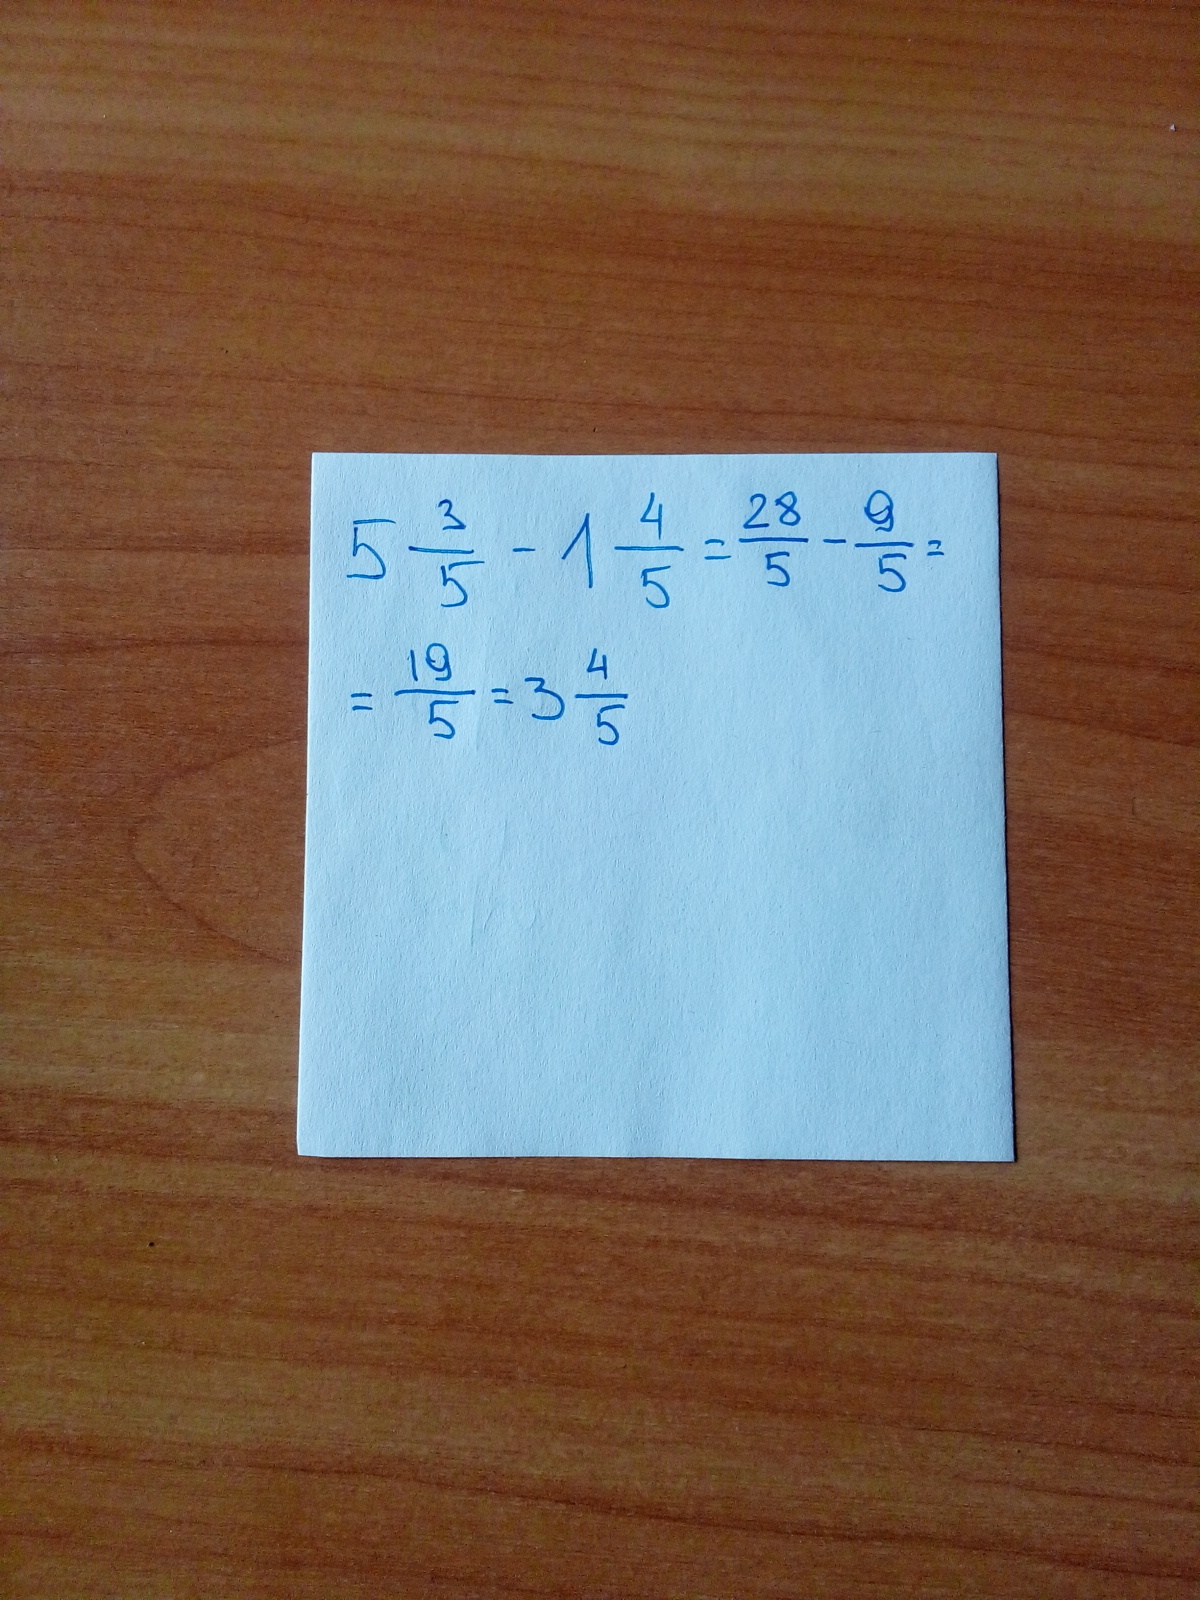 5 3/5 - 1 4/5 = 28/5 - 9/5 =
= 19/5 = 3 4/5